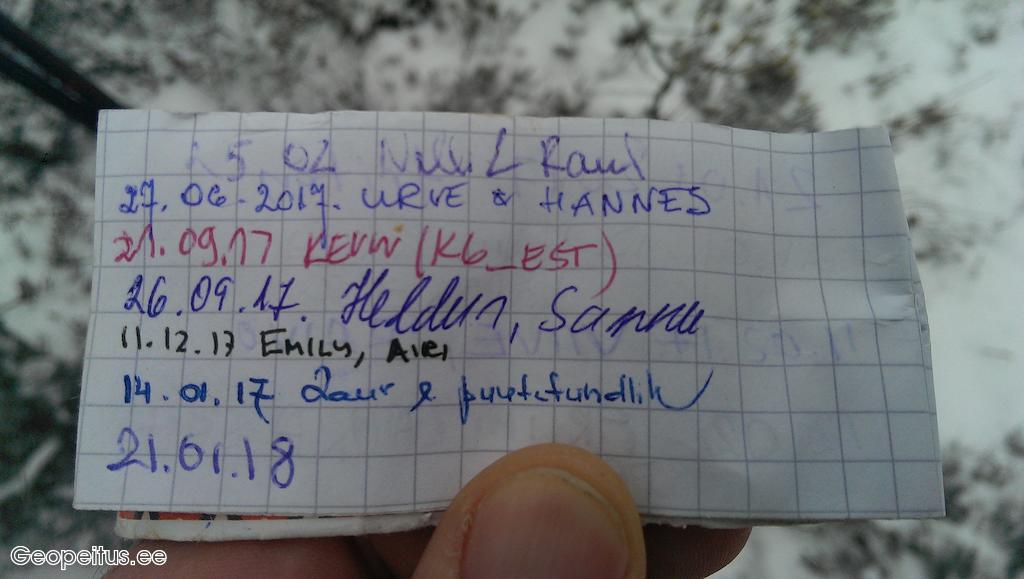 27.06.2017. URVE & HANNES
21.09.17 KEVIN (K6_EST)
26.09.17. Heldur, Sanna
11.12.17 EMILY, AIRI
14.01.17 Laur & puutetundlik
21.01.18
Geopeitus.ee